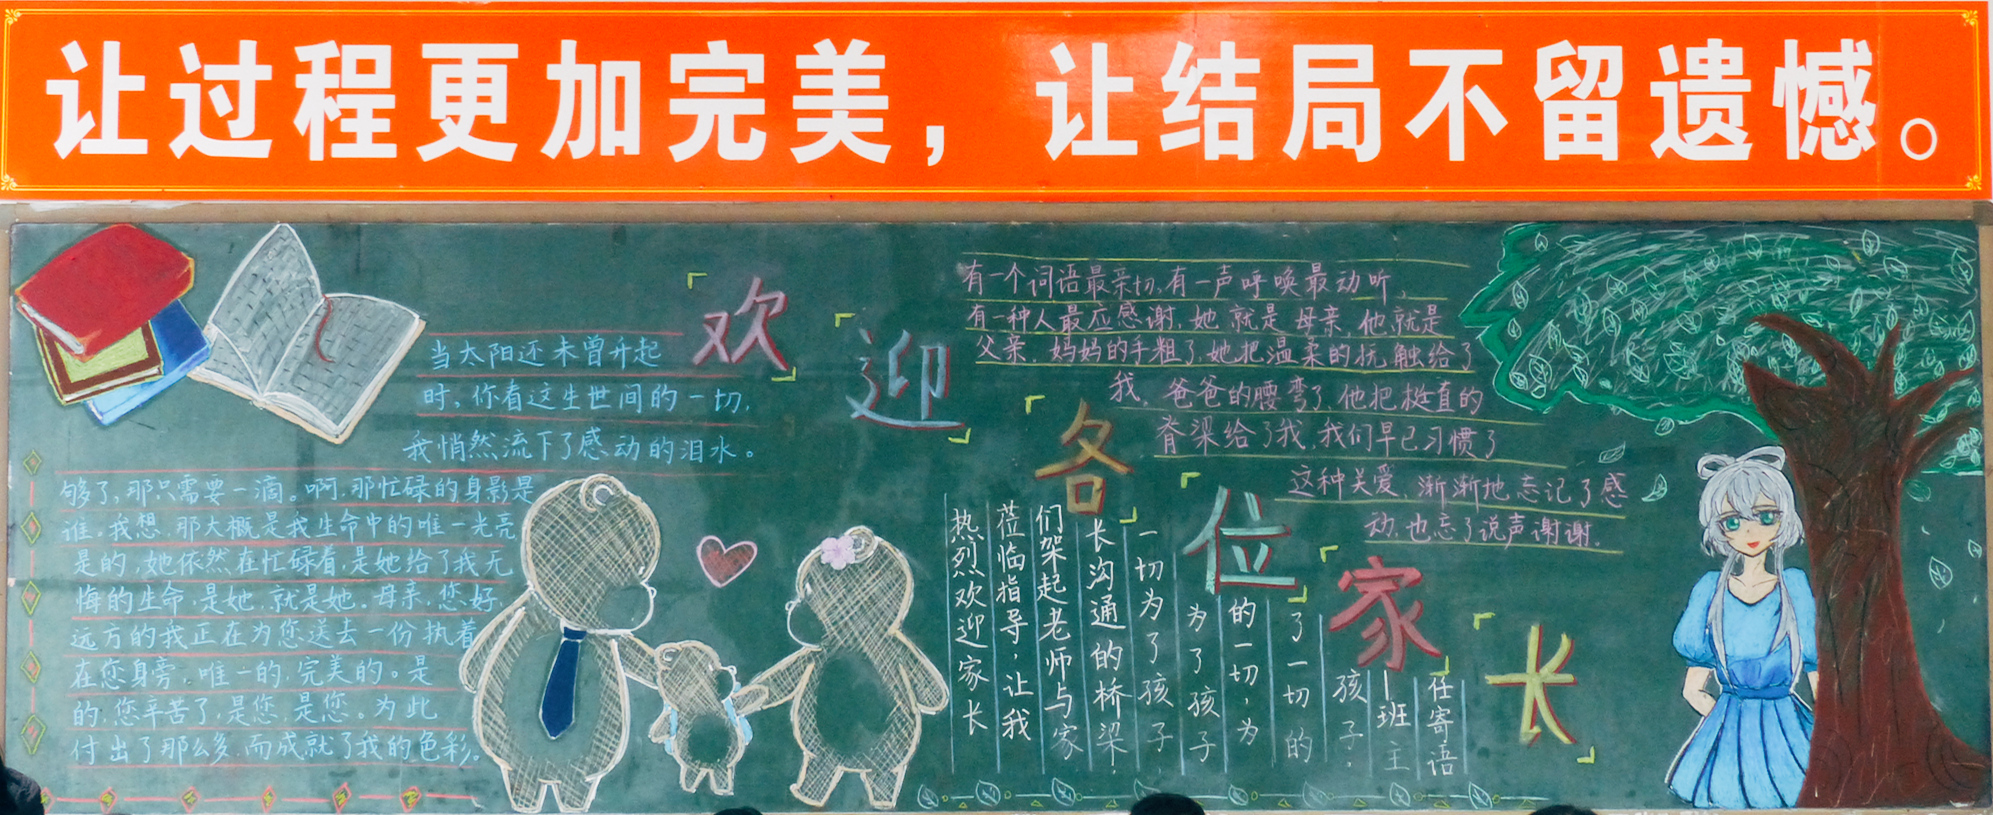 让过程更加完美，让结局不留遗憾。
欢迎各位家长
当太阳还未曾升起
时，你看这生世间的一切，
我悄然流下了感动的泪水。
够了，那只需要一滴。啊，那忙碌的身影是
谁，我想，那大概是我生命中的唯一光亮
是的，她依然在忙碌着，是她给了我无
悔的生命，是她，就是她。母亲，您好，
远方的我正在为您送去一份执着
在您身旁，唯一的，完美的。是
的，您辛苦了，是您，是您。为此
付出了那么多，而成就了我的色彩。
有一个词语最亲切，有一声呼唤最动听，
有一种人最应感谢，她就是母亲，他就是
父亲，妈妈的手粗了，她把温柔的抚触给了
我，爸爸的腰弯了，他把挺直的
脊梁给了我，我们早已习惯了
这种关爱，渐渐地忘记了感
动，也忘了说声谢谢。
热烈欢迎家长
莅临指导，让我
们架起老师与家
长沟通的桥梁，
一切为了孩子，
为了孩子
的一切，为
了一切的
孩子。
—班主
任寄语